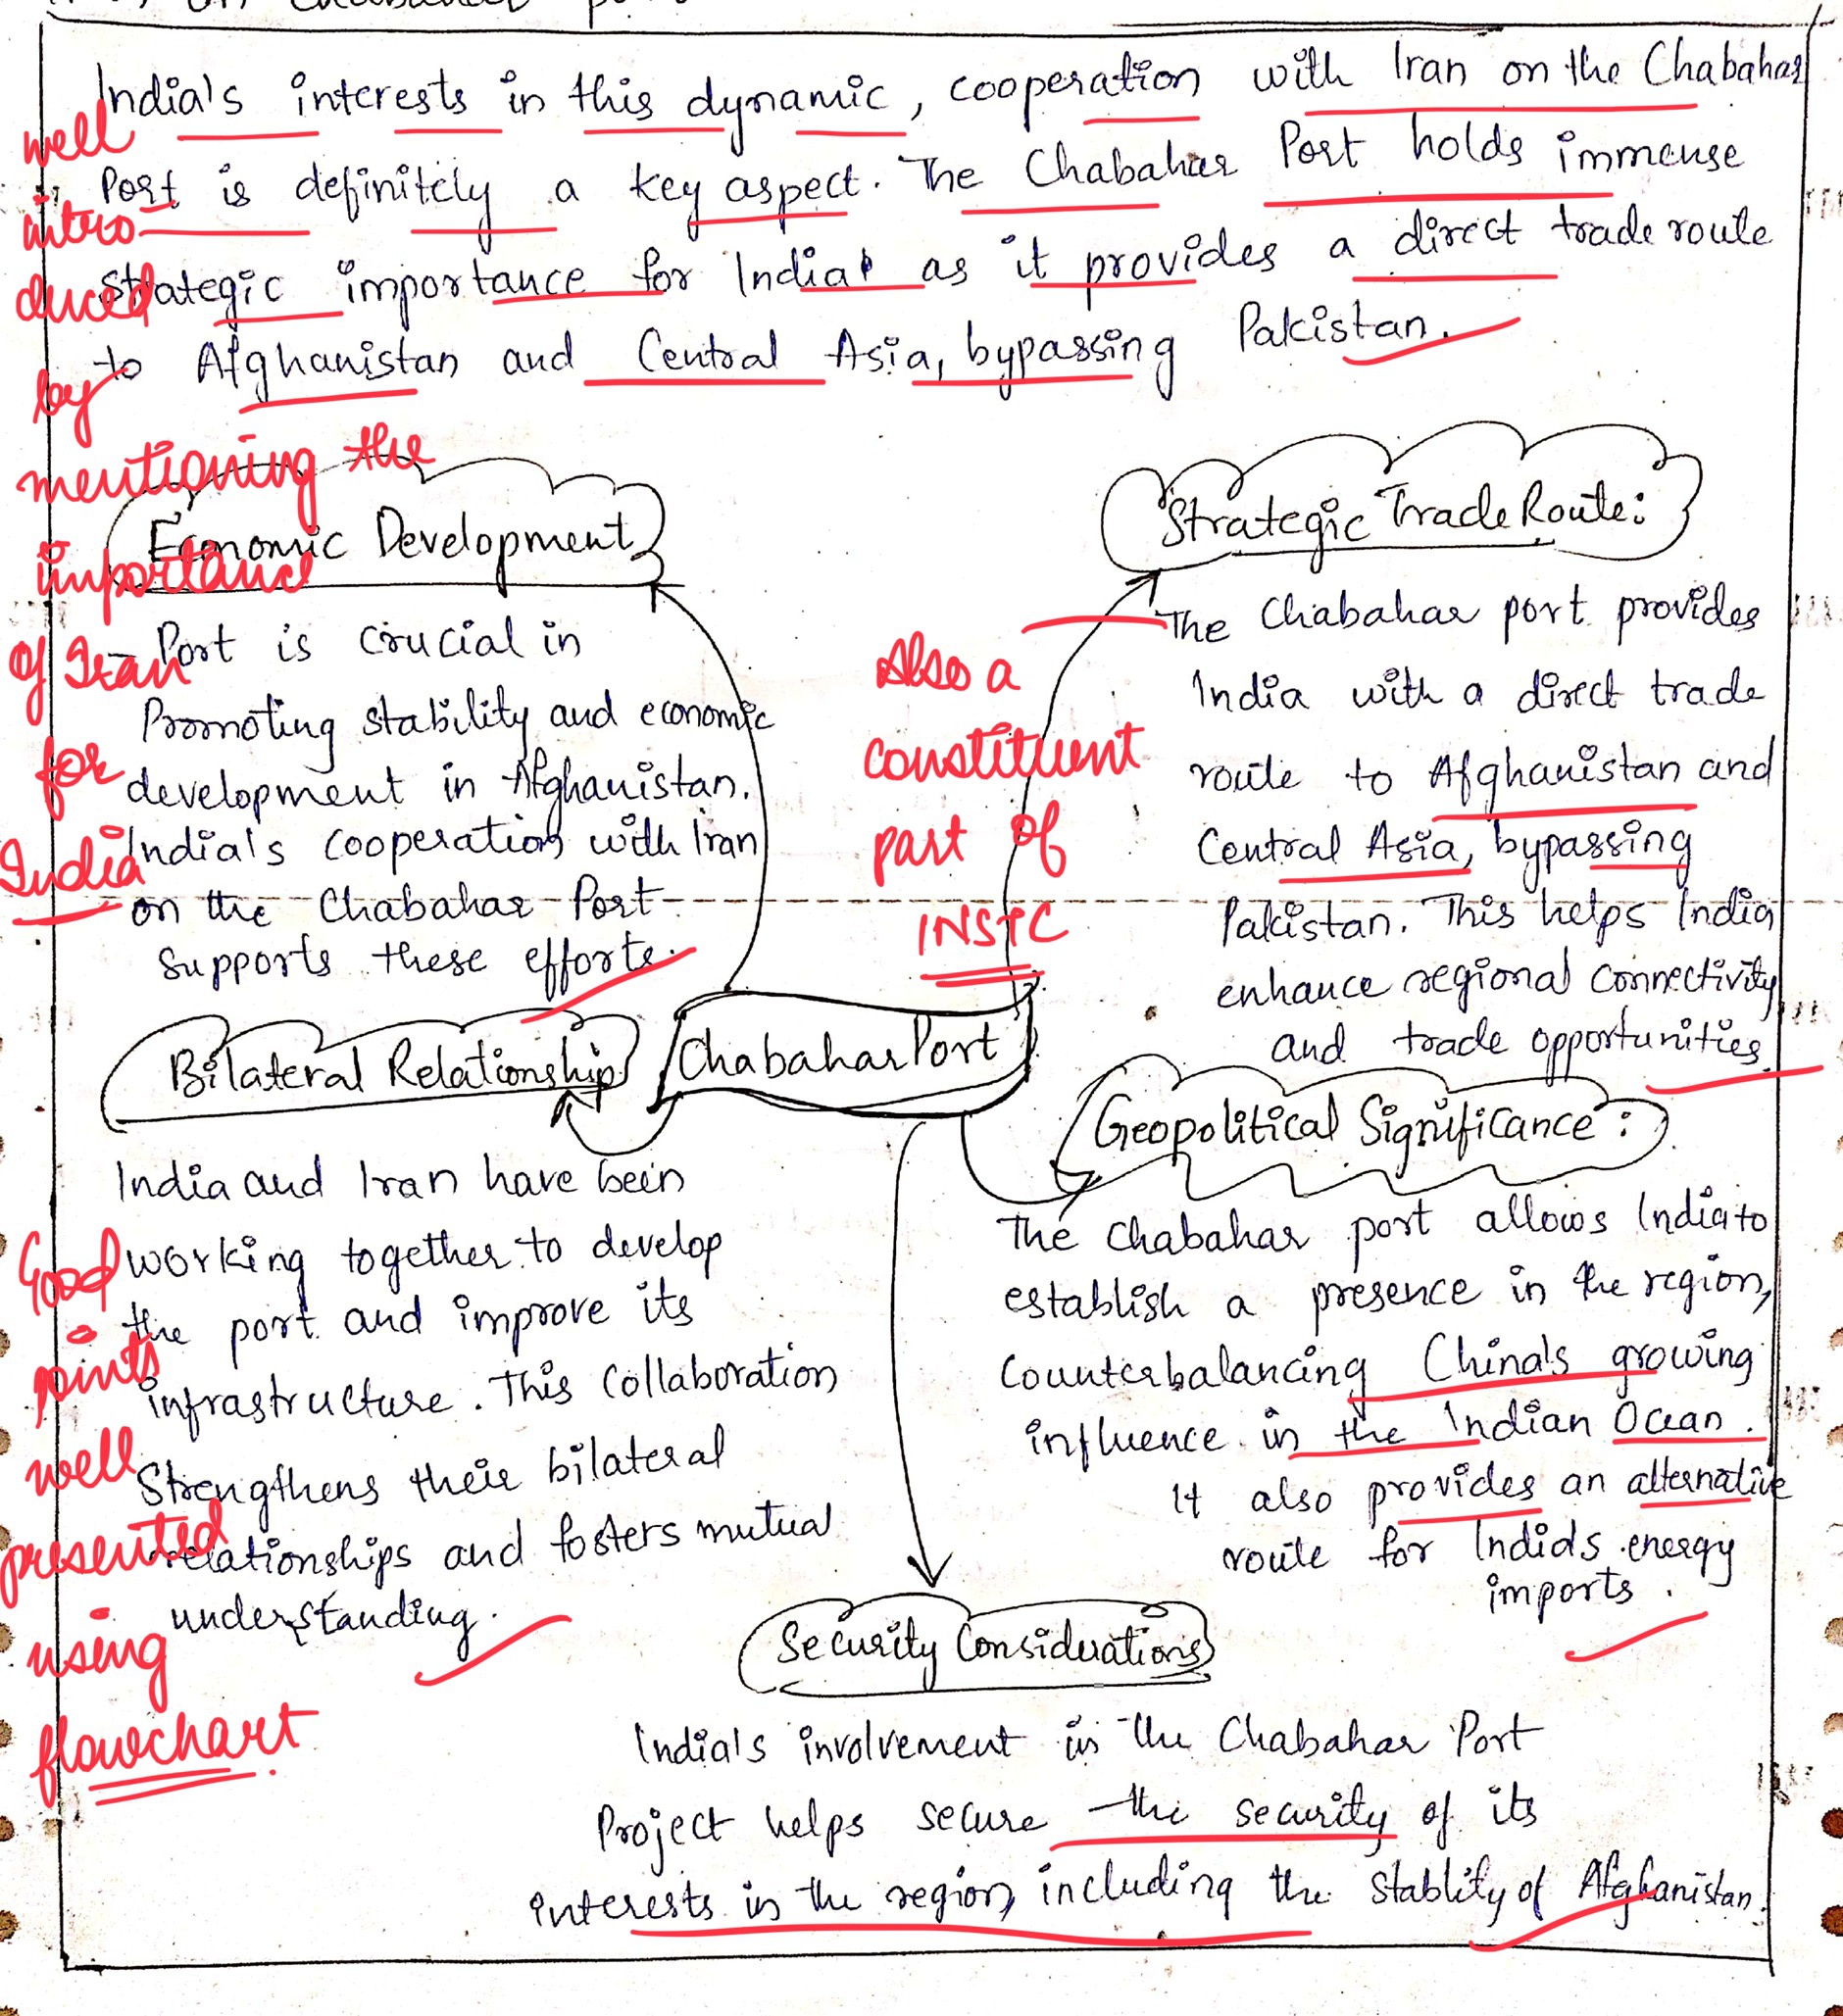 on Chabahar
India's interests in this dynamic, cooperation with Iran on the Chabahar
Port is definitely a key aspect. The Chabahar Port holds immense
strategic importance for India as it provides a direct trade route
to Afghanistan and Central Asia, bypassing Pakistan.
well
intro
duced
by
mentioning the
importance
of Iran
for
India
Economic Development
- Port is crucial in
Promoting stability and economic
development in Afghanistan.
India's cooperation with Iran
on the Chabahar Port
supports these efforts.
Strategic Trade Route:
The Chabahar port provides
India with a direct trade
route to Afghanistan and
Central Asia, bypassing
Pakistan. This helps India
enhance regional connectivity
and trade opportunities.
Also a
constituent
part of
INSTC
Chabahar Port
Bilateral Relationship
India and Iran have been
working together to develop
the port and improve its
infrastructure. This Collaboration
Strengthens their bilateral
relationships and fosters mutual
understanding.
Good
points
well
presented
using
flowchart.
Geopolitical Significance:
The Chabahar port allows India to
establish a presence in the region,
Counterbalancing China's growing
influence in the Indian Ocean.
It also provides an alternative
route for India's energy
imports.
Security Considerations
India's involvement in the Chabahar Port
Project helps secure the security of its
interests in the region, including the stablity of Afghanistan.